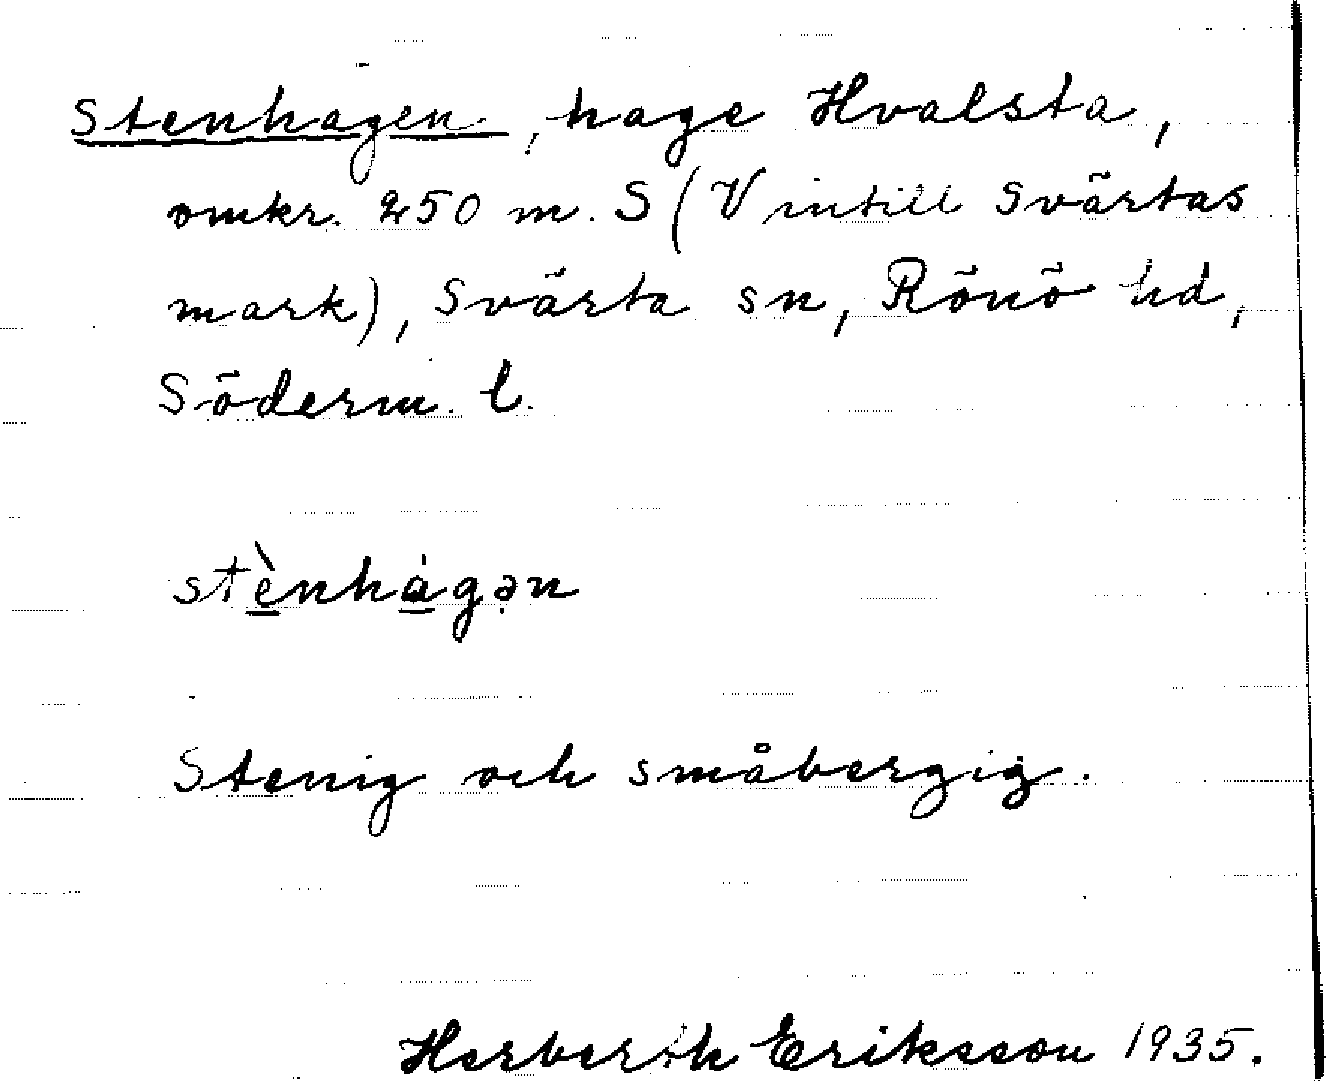 Stenhagen, hage Hvalsta,
omkr. 250 m. S (V intill Svärtas
mark), Svärta sn, Rönö hd,
Söderm. l.
stè̱nhá̱gə̣n
Stenig och småbergig.
Herberth Eriksson 1935.